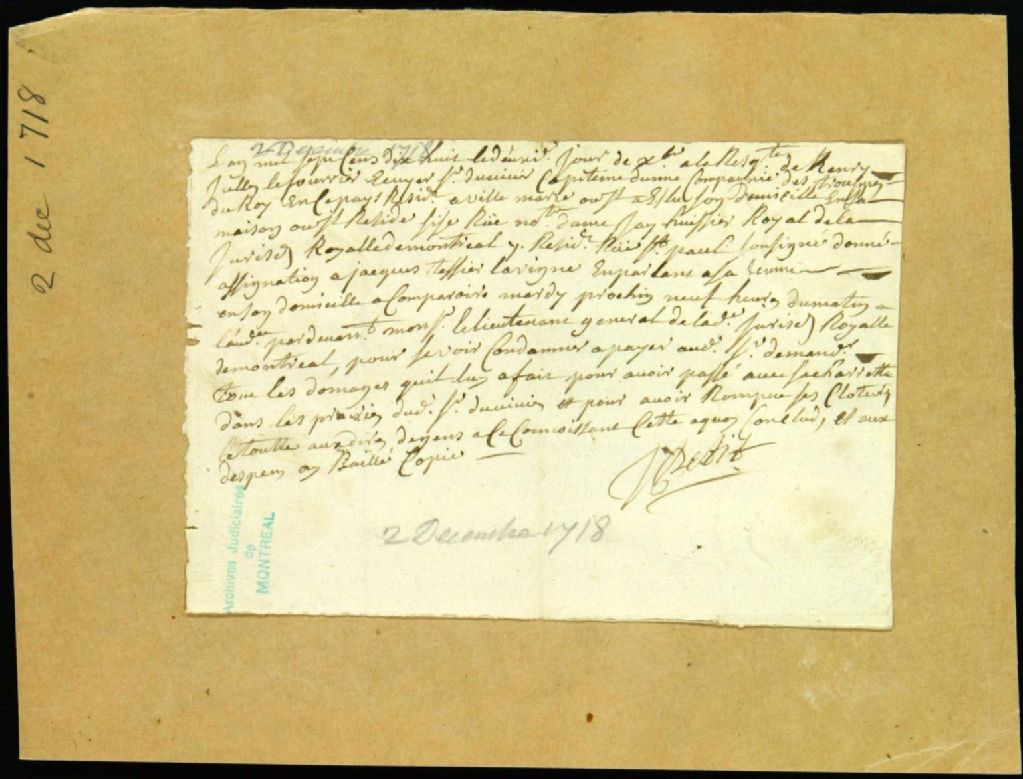 2 dec 1718
2 Decembre 1718
L'an mil sept Cens dix huit le deuxie. jour de xbre a la Reqte de Henry
Jullien le fournier Ecuyer Sr. duvivier Capitaine dune Compagnie des trouppes
du Roy En Ce pays Residt. a ville marie ou Il a Eslu son domicille En sa
maison ou Il Reside sise Rüe notre dame Jay huissier Royal de la
Jurisd Royalle de montreal y Resid. Rüe St. paul sousigné donné
assignation a jacques tessier lavigne En parlant a sa femme
en son domicille a Comparoire mardy prochin neuf heures du matin a
laud. par devant monsr. le lieutenant general de lad. Jurisd Royalle
de montreal, pour se voir Condamner a payer aud. Sr. demandr.
tous les domages quil luy a fait pour avoir passé avec sa charrette
dans les prairies dud. Sr. duvivier et pour avoir Rompue ses Clotures
le toutte au dire de gens a Ce Connoissant Cette a quoy Conclud, et aux
despens ay Baillé Copie
2 Decembre 1718
Archives Judiciaires
de
MONTREAL